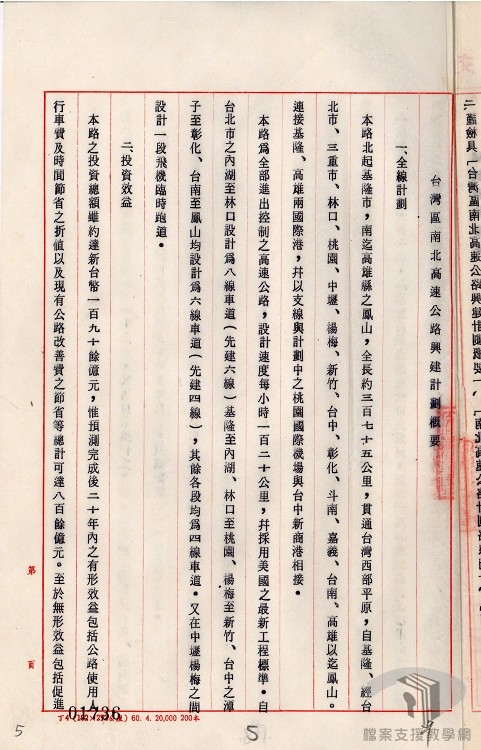 台灣區南北高速公路興建計劃概要
一、全線計劃
本路北起基隆市，南迄高雄縣之鳳山，全長約三百七十五公里，貫通台灣西部平原，自基隆、經台
北市、三重市、林口、桃園、中壢、楊梅、新竹、台中、彰化、斗南、嘉義、台南、高雄以迄鳳山。
連接基隆、高雄兩國際港，幷以支線與計劃中之桃園國際機場與台中新商港相接。
本路爲全部進出控制之高速公路，設計速度每小時一百二十公里，幷採用美國之最新工程標準。自
台北市之內湖至林口設計爲八線車道（先建六線）基隆至內湖、林口至桃園、楊梅至新竹、台中之潭
子至彰化、台南至鳳山均設計爲六線車道（先建四線），其餘各段均爲四線車道。又在中壢楊梅之間
設計一段飛機臨時跑道。
二、投資效益
本路之投資總額雖約達新台幣一百九十餘億元，惟預測完成後二十年內之有形效益包括公路使用人
行車費及時間節省之折値以及現有公路改善費之節省等總計可達八百餘億元。至於無形效益包括促進
第 頁
01736
60. 4. 20,000 200本
5
5
檔案支援教學網